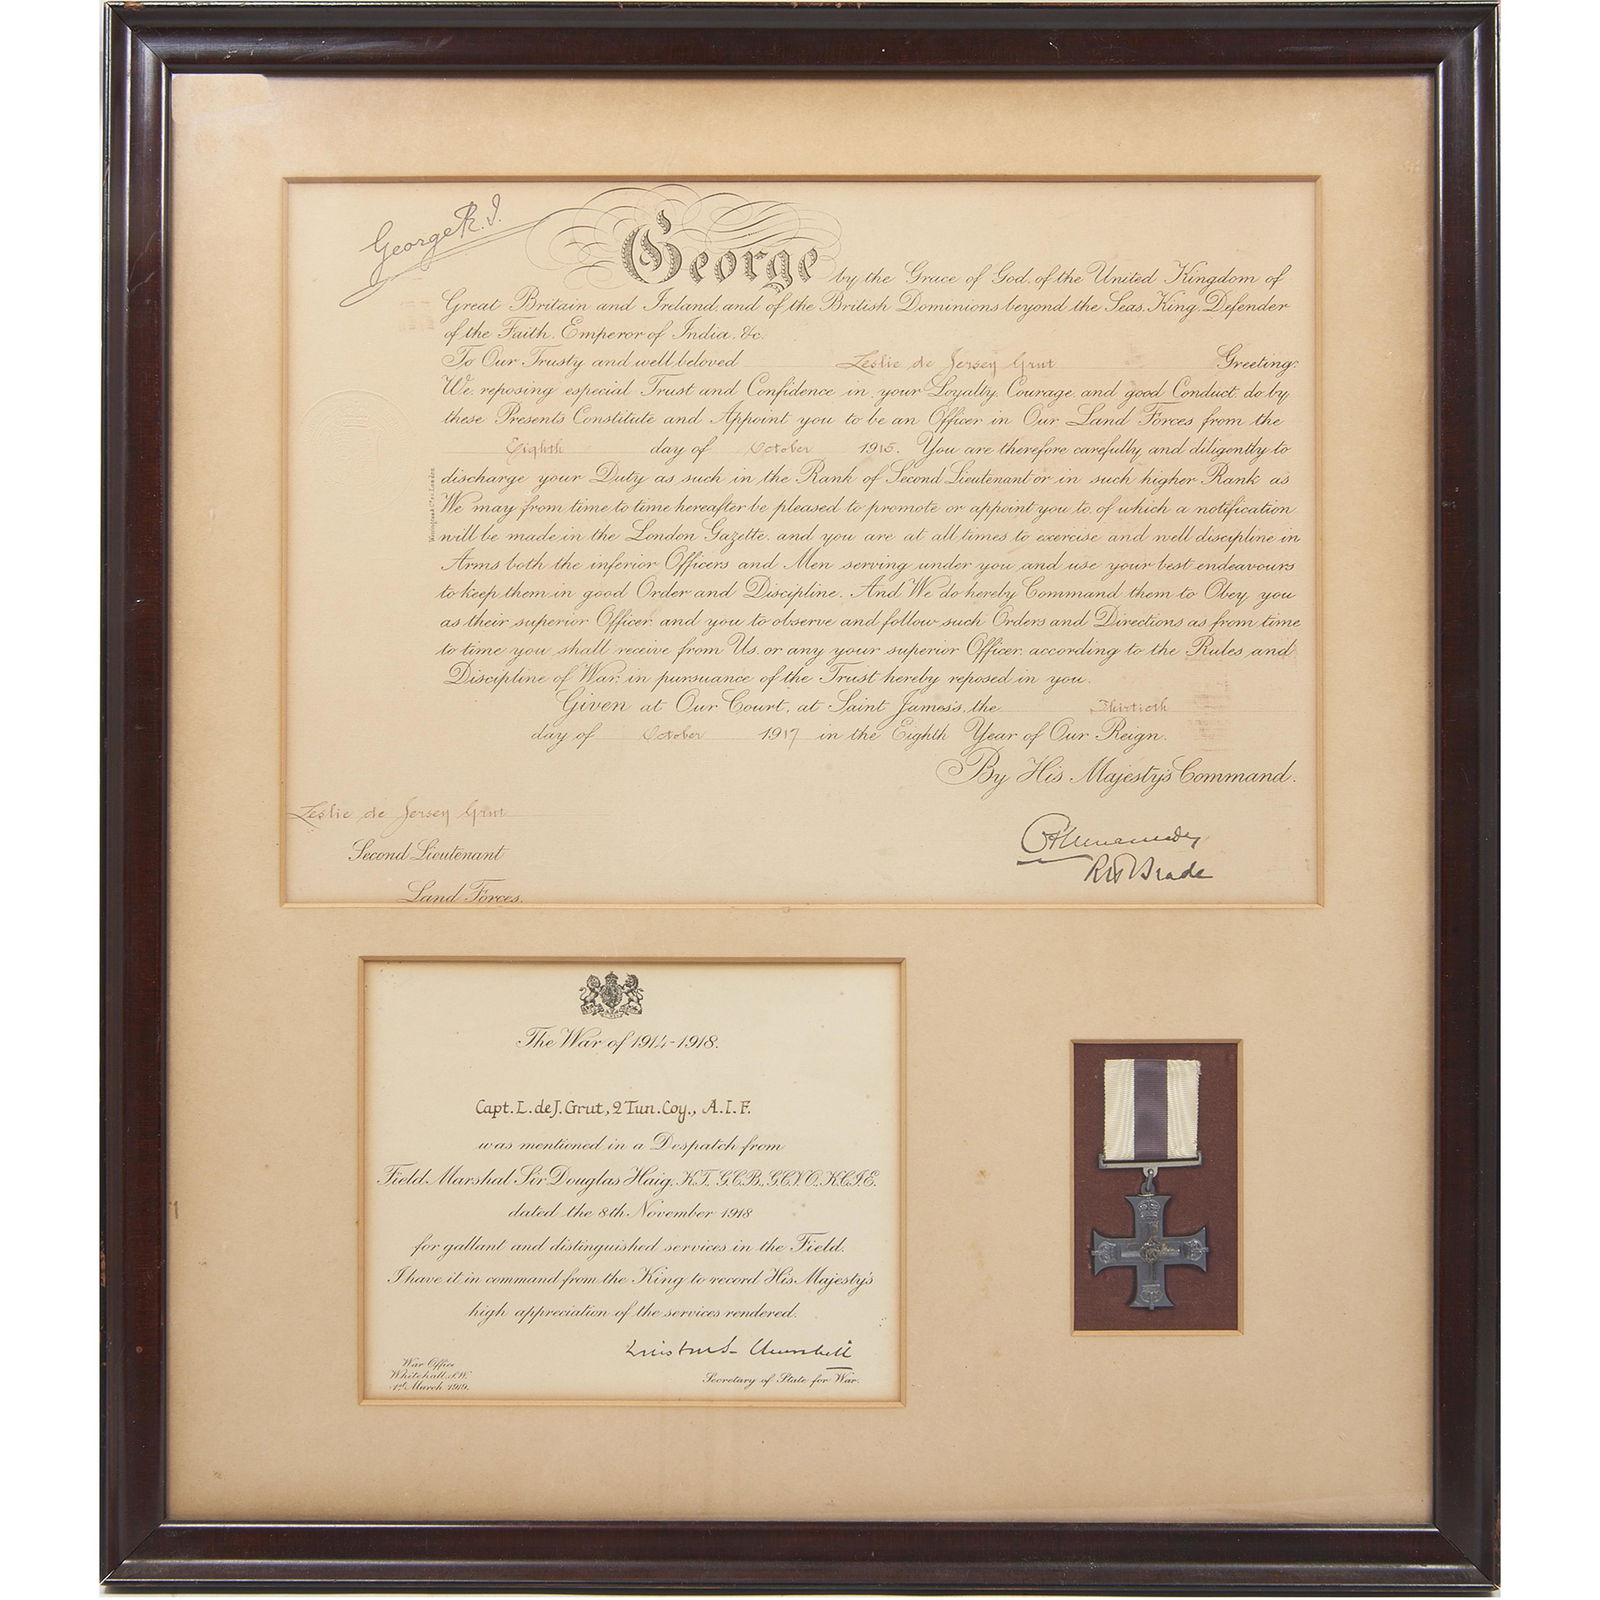 George R.I.
George by the Grace of God, of the United Kingdom of
Great Britain and Ireland, and of the British Dominions beyond the Seas, King, Defender
of the Faith, Emperor of India, &c.
To Our Trusty and well beloved Leslie de Jersey Grut Greeting:
We, reposing especial Trust and Confidence in your Loyalty, Courage, and good Conduct, do by
these Presents Constitute and Appoint you to be an Officer in Our Land Forces from the
Eighth day of October 1915. You are therefore carefully and diligently to
discharge your Duty as such in the Rank of Second Lieutenant or in such higher Rank as
We may from time to time hereafter be pleased to promote or appoint you to, of which a notification
will be made in the London Gazette, and you are at all times to exercise and well discipline in
Arms both the inferior Officers and Men serving under you and use your best endeavours
to keep them in good Order and Discipline. And We do hereby Command them to Obey you
as their superior Officer, and you to observe and follow such Orders and Directions as from time
to time you shall receive from Us, or any your superior Officer, according to the Rules and
Discipline of War, in pursuance of the Trust hereby reposed in you.
Given at Our Court, at Saint James's, the Thirtieth
day of October 1917 in the Eighth Year of Our Reign.
By His Majesty's Command.
Leslie de Jersey Grut
Second Lieutenant
Land Forces.
RH Brade
The War of 1914-1918.
Capt. L. de J. Grut, 2 Tun. Coy., A.I.F.
was mentioned in a Despatch from
Field Marshal Sir Douglas Haig, K.T., G.C.B., G.C.V.O., K.C.I.E.
dated the 8th November 1918
for gallant and distinguished services in the Field.
I have it in command from the King to record His Majesty's
high appreciation of the services rendered.
Winston S. Churchill
War Office
Whitehall, S.W.
1st March 1919.
Secretary of State for War.